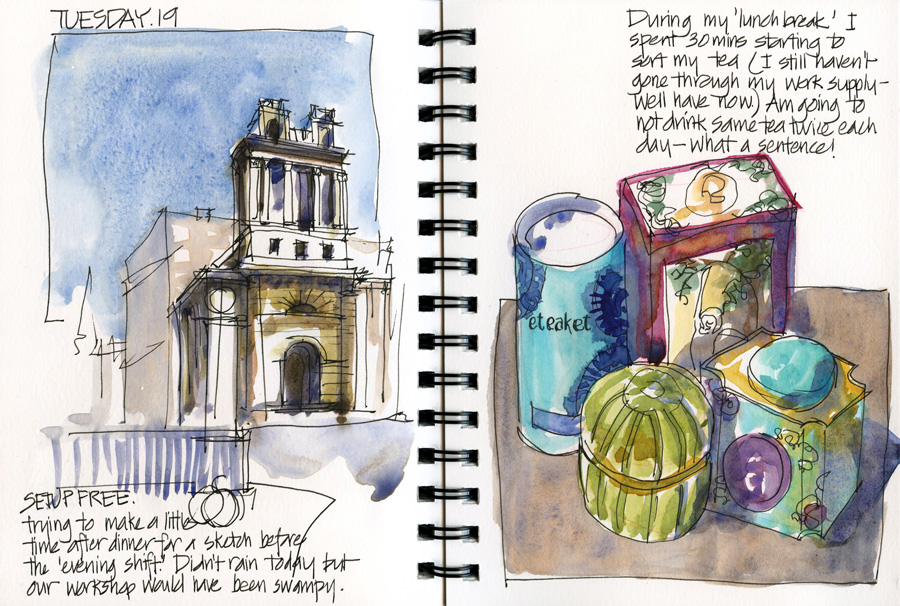 TUESDAY.19
SETUP FREE.
trying to make a little
time after dinner for a sketch before
the 'evening shift'. Didn't rain today but
our workshop would have been swampy.
During my 'lunch break' I
spent 30mins starting to
sort my tea (I still haven't
gone through my work supply-
well have now.) Am going to
not drink same tea twice each
day - what a sentence!
eteaket